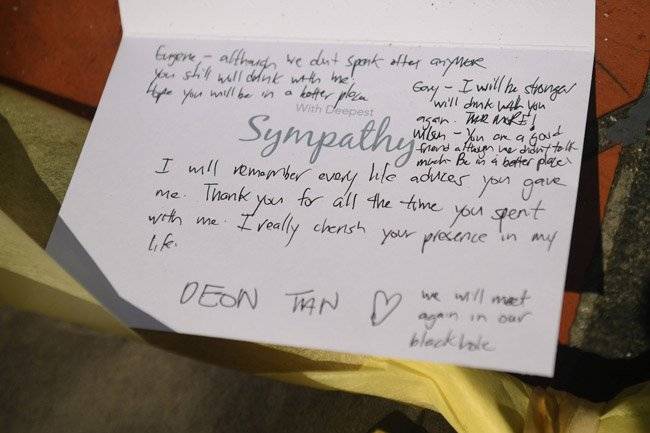 Eugene - although we don't speak often anymore
You still will drink with me.
Hope you will be in a better place
Gary - I will be stronger
will drink with you
again. MORE!
Wilson - You are a good
friend although we didn't talk
much. Be in a better place
With Deepest
Sympathy
I will remember every life advices you gave
me. Thank you for all the time you spent
with me. I really cherish your presence in my
life.
DEON TAN ♡
we will meet
again in our
blackhole